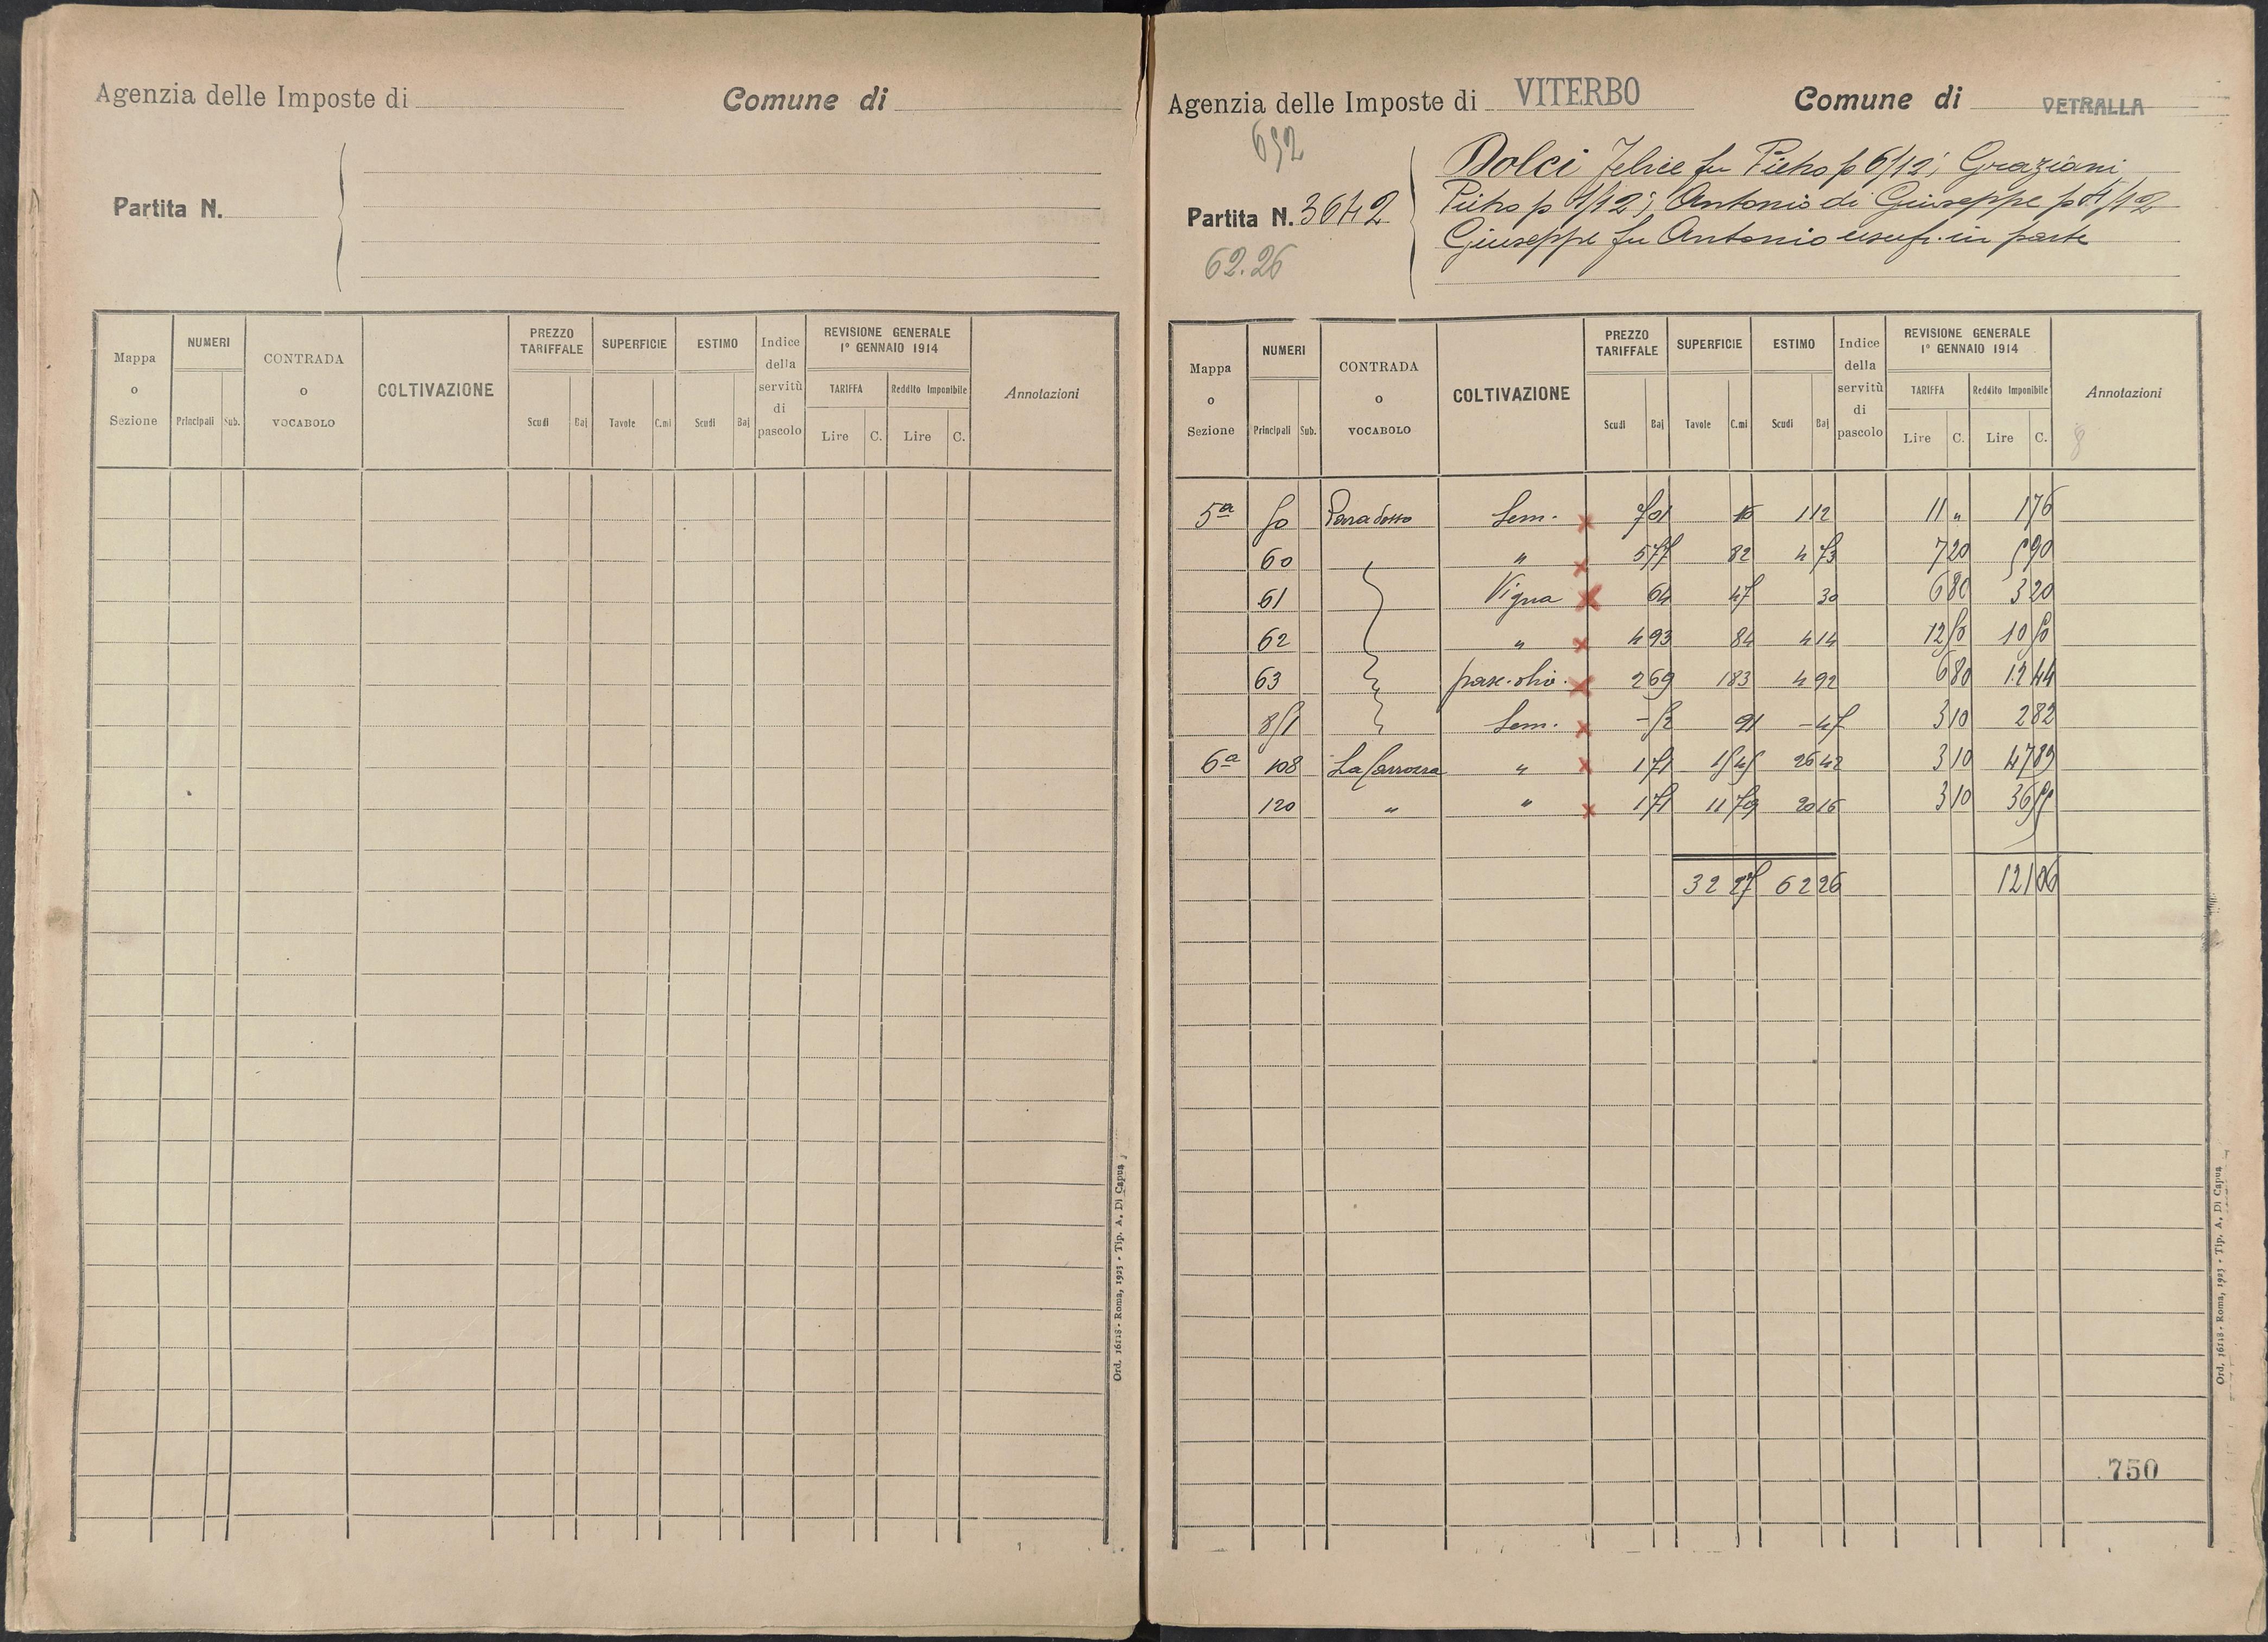 Agenzia delle Imposte di
Comune di
Partita N.
Mappa o Sezione
NUMERI
Principali Sub.
CONTRADA o VOCABOLO
COLTIVAZIONE
PREZZO TARIFFALE
Scudi Baj
SUPERFICIE
Tavole C.mi
ESTIMO
Scudi Baj
Indice della servitù di pascolo
REVISIONE GENERALE 1° GENNAIO 1914
TARIFFA
Lire C.
Reddito Imponibile
Lire C.
Annotazioni
Ord. 16118 - Roma, 1923 - Tip. A. Di Capua
1
Agenzia delle Imposte di VITERBO
Comune di VETRALLA
652
Partita N. 3642
62.26
Dolci Felice fu Pietro p 6/12; Graziani
Pietro p 1/12; Antonio di Giuseppe p 1/12
Giuseppe fu Antonio usufr. in parte
Mappa o Sezione
NUMERI
Principali Sub.
CONTRADA o VOCABOLO
COLTIVAZIONE
PREZZO TARIFFALE
Scudi Baj
SUPERFICIE
Tavole C.mi
ESTIMO
Scudi Baj
Indice della servitù di pascolo
REVISIONE GENERALE 1° GENNAIO 1914
TARIFFA
Lire C.
Reddito Imponibile
Lire C.
Annotazioni
8
5a 50 Paradosso Sem. x 7 01 16 1 12 11 " 1 76
60 " x 5 77 82 4 73 7 20 5 90
61 Vigna x 64 47 30 6 80 3 20
62 " x 4 93 84 4 14 12 50 10 50
63 pasc. oliv. x 2 69 1 83 4 92 6 80 12 44
851 Sem. x - 52 91 - 47 3 10 2 82
6a 108 La Carrozza " x 1 71 15 45 26 42 3 10 47 89
120 " " x 1 71 11 79 20 16 3 10 36 55
32 27 62 26 121 06
750
Ord. 16118 - Roma, 1923 - Tip. A. Di Capua